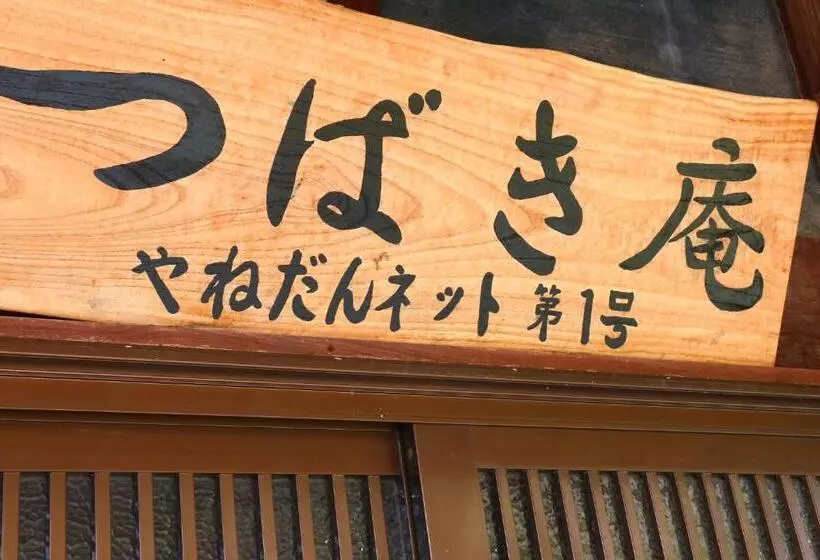 つばき庵
やねだんネット第1号